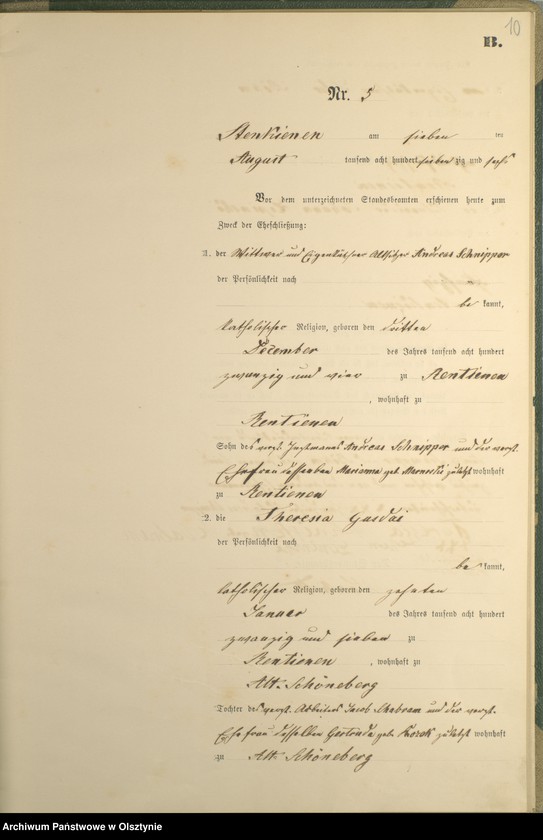 10
B.
Nr. 5
Stenkienen am sieben ten
August tausend acht hundert sieben zig und sechs
Vor dem unterzeichneten Standesbeamten erschienen heute zum
Zweck der Eheschließung:
1. der Wittwer und Eigenkäthner Altsitzer Andreas Schnipper
der Persönlichkeit nach
be kannt,
katholischer Religion, geboren den dritten
December des Jahres tausend acht hundert
zwanzig und vier zu Rentienen
, wohnhaft zu
Rentienen
Sohn des verst. Instmanns Andreas Schnipper und der verst.
Ehefrau desselben Marianna geb. zuletzt wohnhaft
zu Rentienen
2. die Theresia Gasdai
der Persönlichkeit nach
be kannt,
katholischer Religion, geboren den zehnten
Januar des Jahres tausend acht hundert
zwanzig und sieben zu
Rentienen , wohnhaft zu
Alt-Schöneberg
Tochter des verst. Arbeiters Jacob und der verst.
Ehefrau desselben Gertruda geb. zuletzt wohnhaft
zu Alt Schöneberg
Archiwum Państwowe w Olsztynie